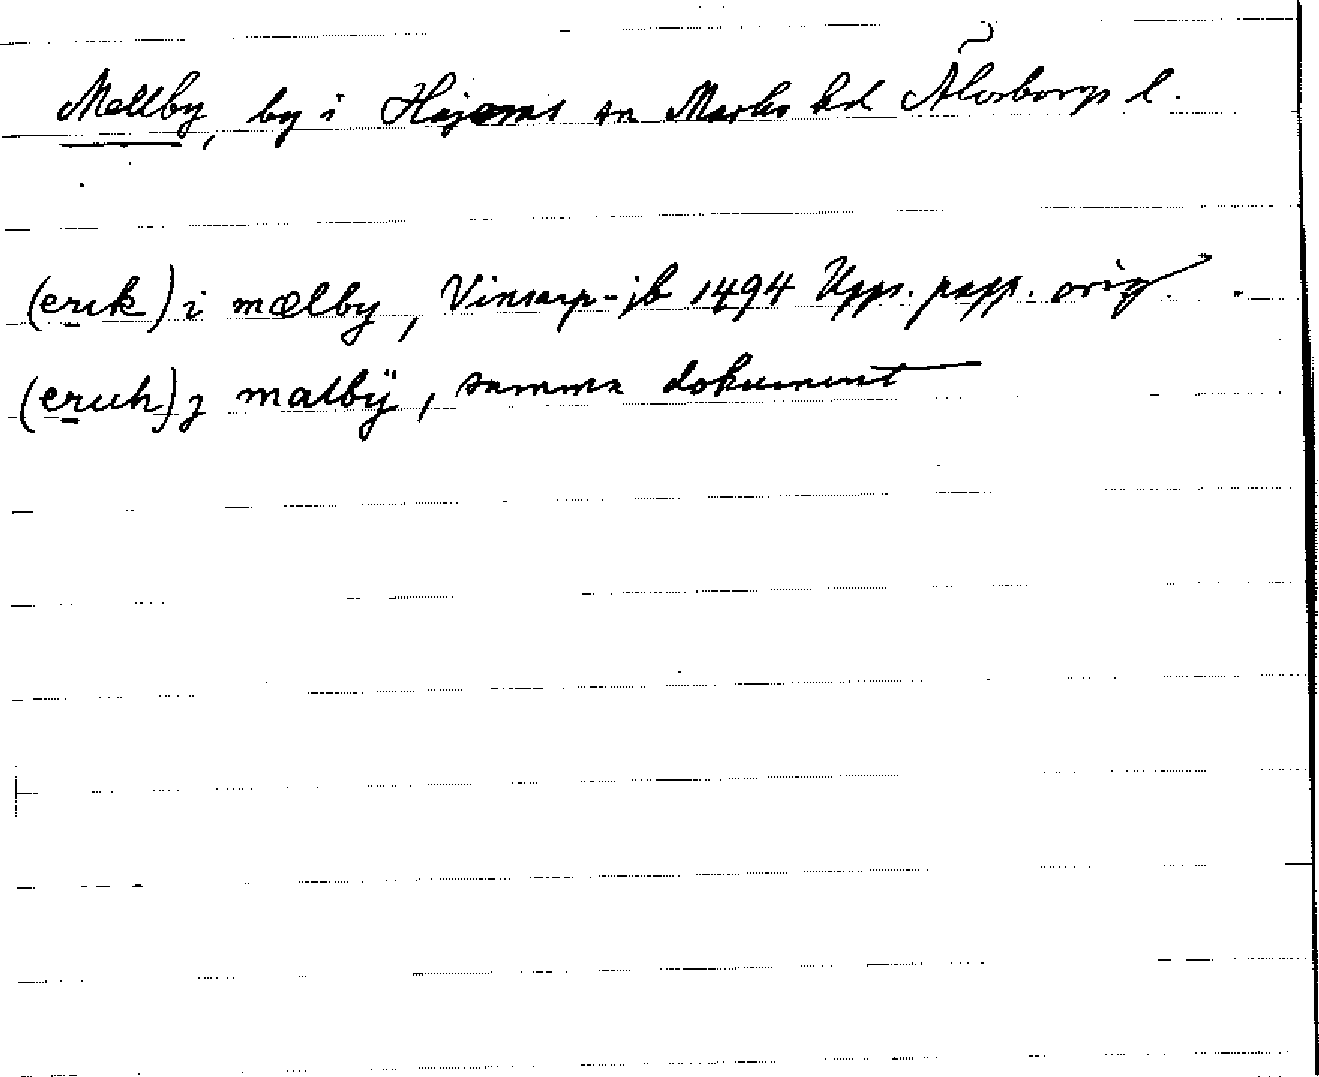 Mellby, by i Hajoms sn Marks hd Älvsborgs l.
(erik) i mælby, Vinsarp-jb 1494 Upps. papp. orig.
(erich) j malbÿ, samma dokument